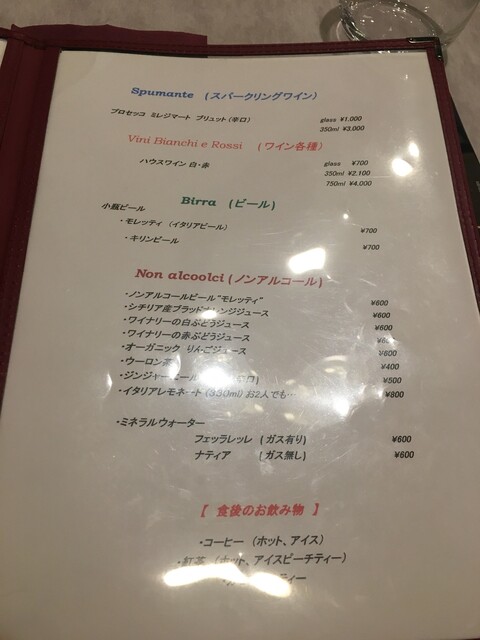 Spumante (スパークリングワイン)
プロセッコ ミレジマート ブリュット (辛口) glass ¥1.000
350ml ¥3,000
Vini Bianchi e Rossi (ワイン各種)
ハウスワイン 白・赤 glass ¥700
350ml ¥2,100
750ml ¥4,000
Birra (ビール)
小瓶ビール
・モレッティ (イタリアビール) ¥700
・キリンビール ¥700
Non alcoolci (ノンアルコール)
・ノンアルコールビール"モレッティ" ¥600
・シチリア産ブラッドオレンジジュース ¥600
・ワイナリーの白ぶどうジュース ¥600
・ワイナリーの赤ぶどうジュース
・オーガニック りんごジュース ¥600
・ウーロン茶 ¥400
・ジンジャーエール ¥500
・イタリアレモネート (350ml) お2人でも… ¥800
・ミネラルウォーター
フェッラレッレ (ガス有り) ¥600
ナティア (ガス無し) ¥600
【 食後のお飲み物 】
・コーヒー (ホット、アイス)
・紅茶 (ホット、アイスピーチティー)
ティー